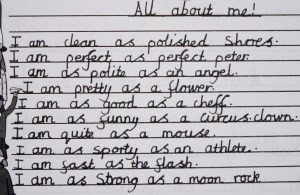 All about me!
I am clean as polished Shoes.
I am perfect as perfect peter.
I am as polite as an angel.
I am pretty as a flower.
I am as good as a cheff.
I am as funny as a circus clown.
I am quite as a mouse.
I am as sporty as an athlete.
I am fast as the flash.
I am as strong as a moon rock